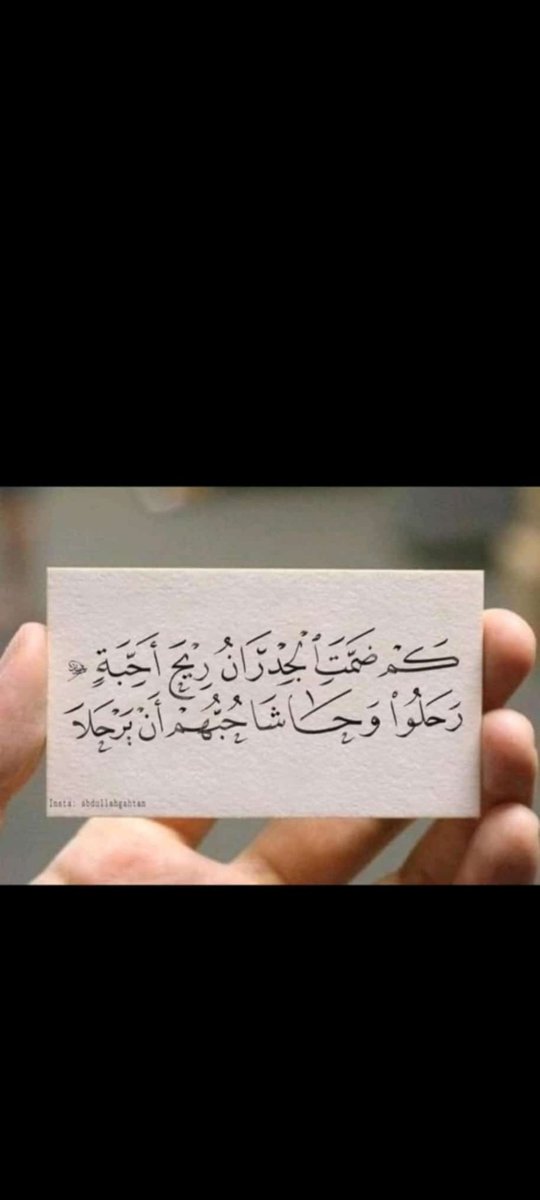 كَمْ ضَمَّتِ ٱلْجِدْرَانُ رِيْحَ أَحِبَّةٍ
رَحَلُواْ وَحَاشَا حُبُّهُمْ أَنْ يَرْحَلَا
Insta: abdullahgahtan